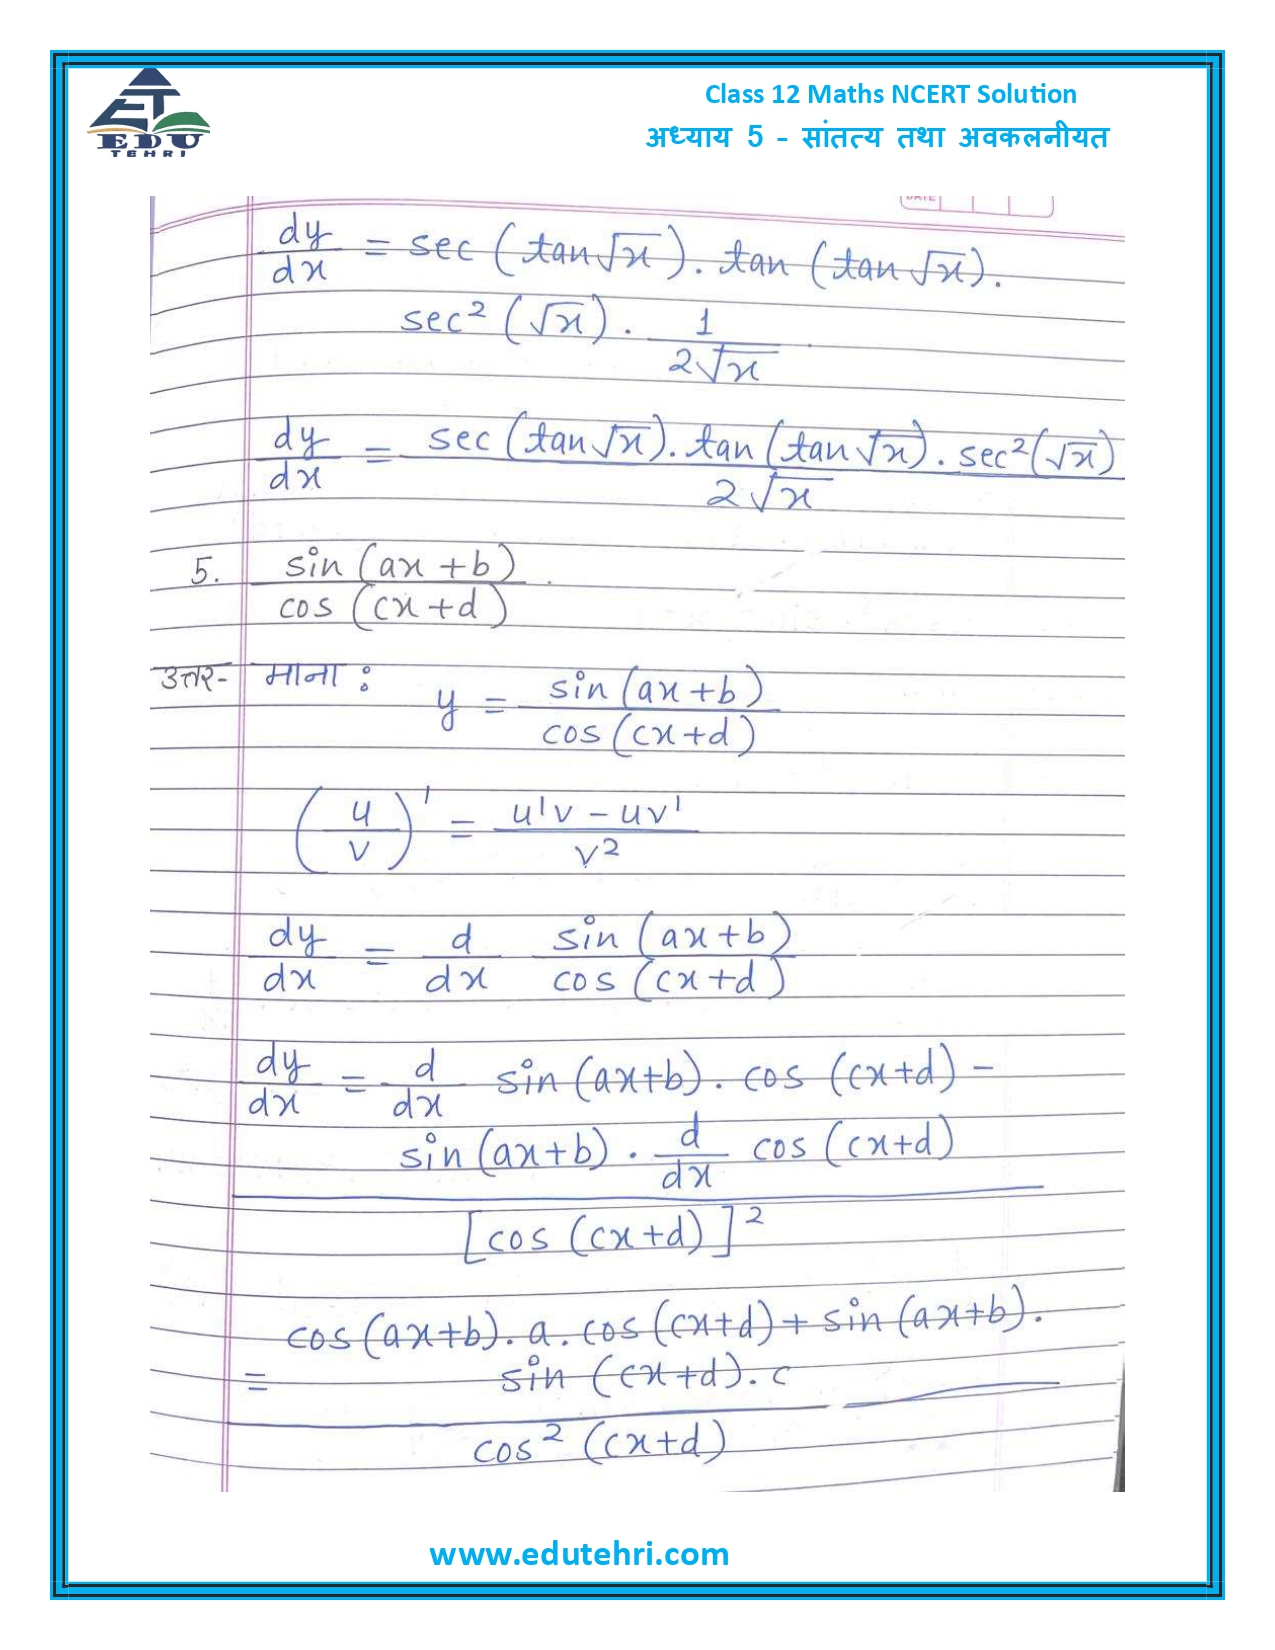 EDU
TEHRI
Class 12 Maths NCERT Solution
अध्याय 5 - सांतत्य तथा अवकलनीयत
DATE
dy/dx = sec(tan√x). tan(tan√x).
sec²(√x). 1/2√x
dy/dx = sec(tan√x). tan(tan√x). sec²(√x) / 2√x
5. sin(ax+b) / cos(cx+d)
उत्तर- माना : y = sin(ax+b) / cos(cx+d)
(u/v)' = u'v - uv' / v²
dy/dx = d/dx sin(ax+b) / cos(cx+d)
dy/dx = d/dx sin(ax+b). cos(cx+d) -
sin(ax+b). d/dx cos(cx+d)
[cos(cx+d)]²
cos(ax+b). a. cos(cx+d) + sin(ax+b).
= sin(cx+d). c
cos²(cx+d)
www.edutehri.com